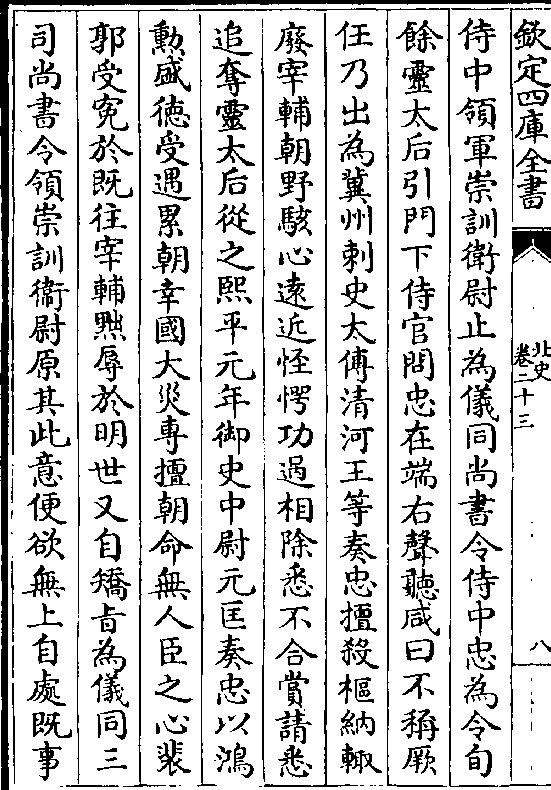 欽定四庫全書
北史
卷二十三
八
侍中領軍崇訓衛尉止為儀同尚書令侍中忠為令旬
餘靈太后引門下侍官問忠在端右聲聽咸曰不稱厥
任乃出為冀州刺史太傅清河王等奏忠擅殺樞納輙
廢宰輔朝野駭心遠近怪愕功過相除悉不合賞請悉
追奪靈太后從之熙平元年御史中尉元匡奏忠以鴻
勲盛德受遇累朝幸國大災專擅朝命無人臣之心裴
郭受寃於既往宰輔黜辱於明世又自矯㫖為儀同三
司尚書令領崇訓衛尉原其此意便欲無上自處既事